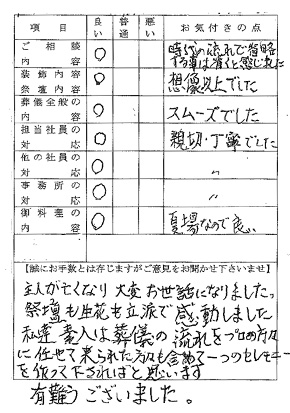 良い 普通 悪い お気付きの点
ご相談内容 ○ 時代の流れで省略する事は潔いと感じました
装飾内容 祭壇内容 ○ 想像以上でした
葬儀全般の内容 ○ スムーズでした
担当社員の対応 ○ 親切・丁寧でした
他の社員の対応 ○ 〃
事務所の対応 ○ 〃
御料理の内容 ○ 夏場なので良い
【誠にお手数とは存じますがご意見をお聞かせ下さいませ】
主人が亡くなり大変お世話になりました。
祭壇も生花も立派で感動しました
私達素人は葬儀の流れをプロの方々
に任せて来られた方々も含めて一つのセレモニー
を作って下さればと思います
有難うございました。